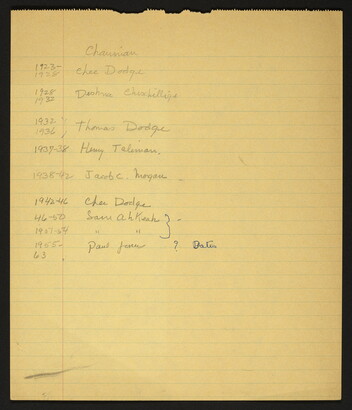 Chairman
1923-
1928 Chee Dodge
1928
1932 Deshna
1932
1936 Thomas Dodge
1937-38 Henry Taliman.
1938-42 Jacob C. Morgan
1942-46 Chee Dodge
46-50 Sam Ahkeah
" "
1955- Paul Jones ? Dates
63